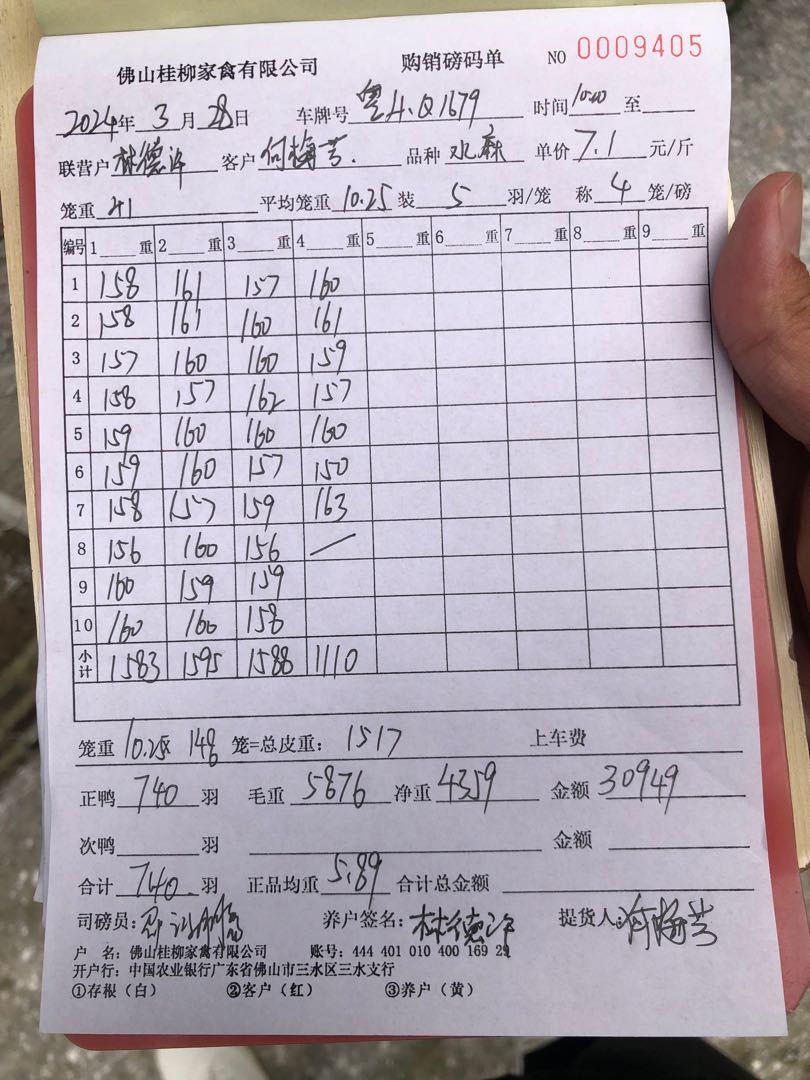 佛山桂柳家禽有限公司 购销磅码单 NO 0009405
2024年 3 月 28日 车牌号 粤H.Q1679 时间 10:00 至
联营户 林德许 客户 何梅芳. 品种 水麻 单价 7.1 元/斤
笼重 41 平均笼重 10.25 装 5 羽/笼 称 4 笼/磅
编号 1 重 2 重 3 重 4 重 5 重 6 重 7 重 8 重 9 重
1 158 161 157 160
2 158 161 160 161
3 157 160 160 159
4 158 157 162 157
5 159 160 160 160
6 159 160 157 150
7 158 157 159 163
8 156 160 156 /
9 160 159 159
10 160 160 158
小计 1583 1595 1588 1110
笼重 10.25x 148 笼=总皮重: 1517 上车费
正鸭 740 羽 毛重 5876 净重 4359 金额 30949
次鸭 羽 金额
合计 740 羽 正品均重 5.89 合计总金额
司磅员: 养户签名: 林德许 提货人: 何梅芳
户 名: 佛山桂柳家禽有限公司 账号: 444 401 010 400 169 29
开户行: 中国农业银行广东省佛山市三水区三水支行
①存根（白） ②客户（红） ③养户（黄）